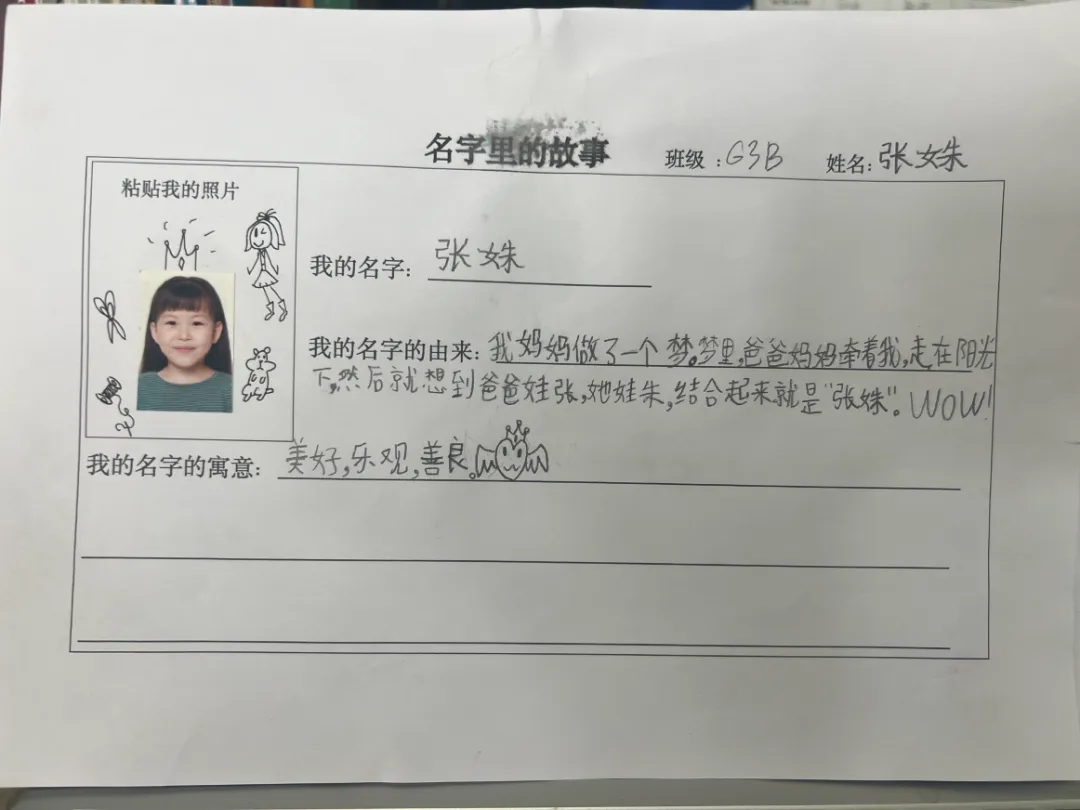 名字里的故事 班级：G3B 姓名：张姝
粘贴我的照片
我的名字：张姝
我的名字的由来：我妈妈做了一个梦。梦里，爸爸妈妈牵着我，走在阳光
下，然后就想到爸爸姓张，她姓朱，结合起来就是“张姝”。WOW！
我的名字的寓意：美好，乐观，善良。